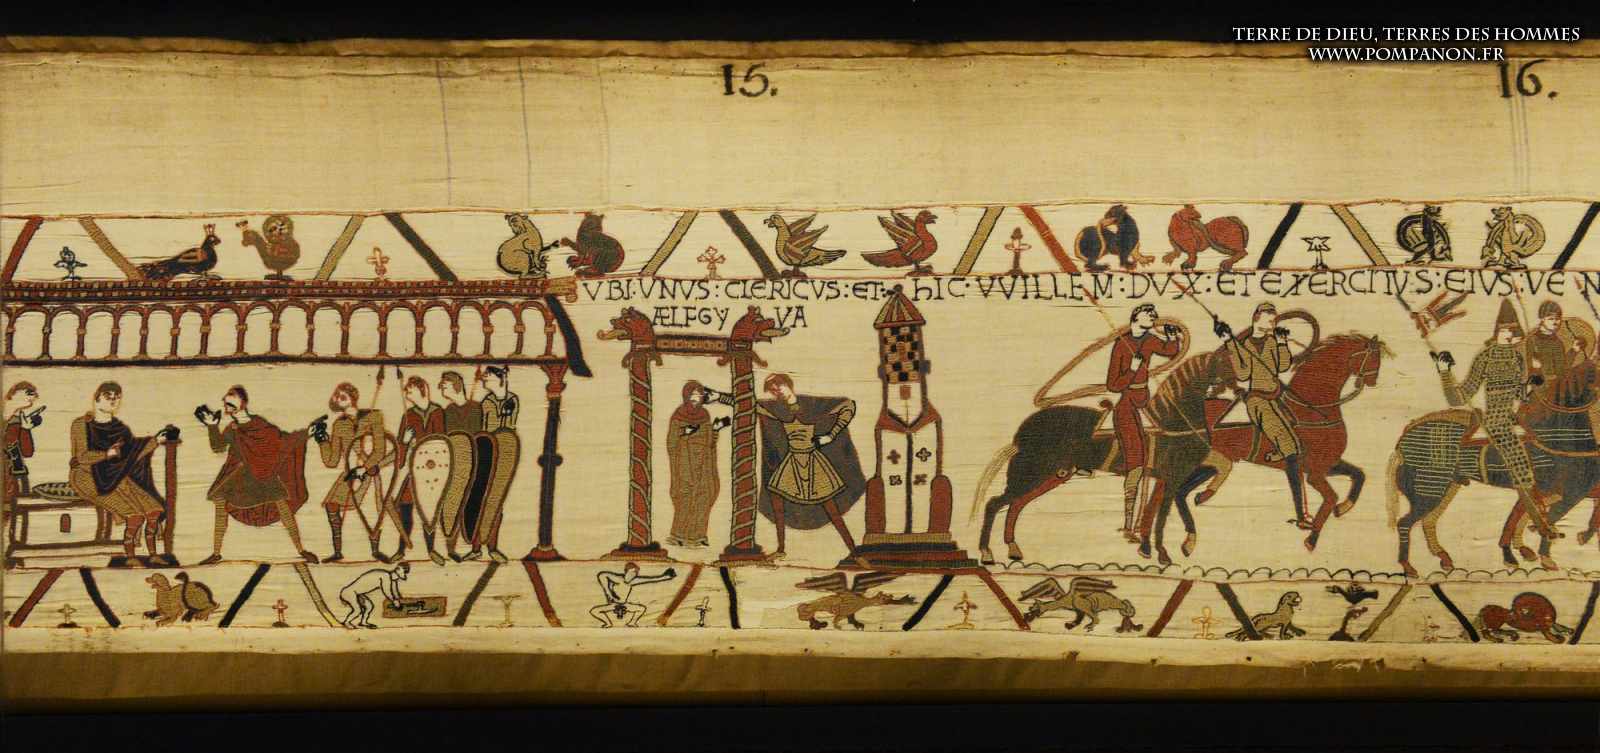 TERRE DE DIEU, TERRES DES HOMMES
WWW.POMPANON.FR
15.
16.
VBI:VNVS:CLERICVS:ET: hIC·VVILLEM:DVX:ET EXERCITVS:EIVS:VEN
ÆLFGYVA